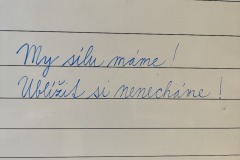 My sílu máme!
Ublížit si nenecháme!